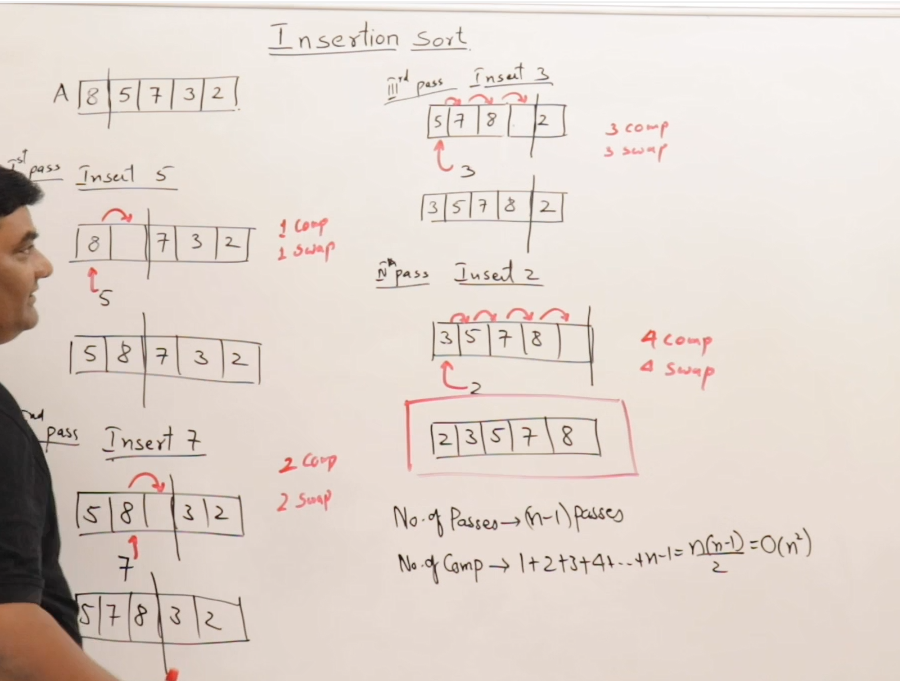 Insertion Sort
A 8 5 7 3 2
Ist pass Insert 5
8 7 3 2
5
1 comp
1 swap
5 8 7 3 2
nd pass Insert 7
5 8 3 2
7
2 comp
2 swap
5 7 8 3 2
IIIrd pass Insert 3
5 7 8 2
3
3 comp
3 swap
3 5 7 8 2
pass Insert 2
3 5 7 8
2
4 comp
4 swap
2 3 5 7 8
No. of Passes → (n-1) passes
No. of Comp → 1+2+3+4+...+n-1 = n(n-1)/2 = O(n²)